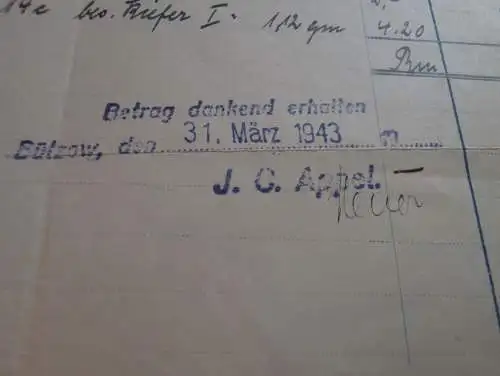 14e bes. Kiefer I. 1,12 qm
4.20
Rm
Betrag dankend erhalten
Bützow, den 31. März 1943
J. C. Appel.